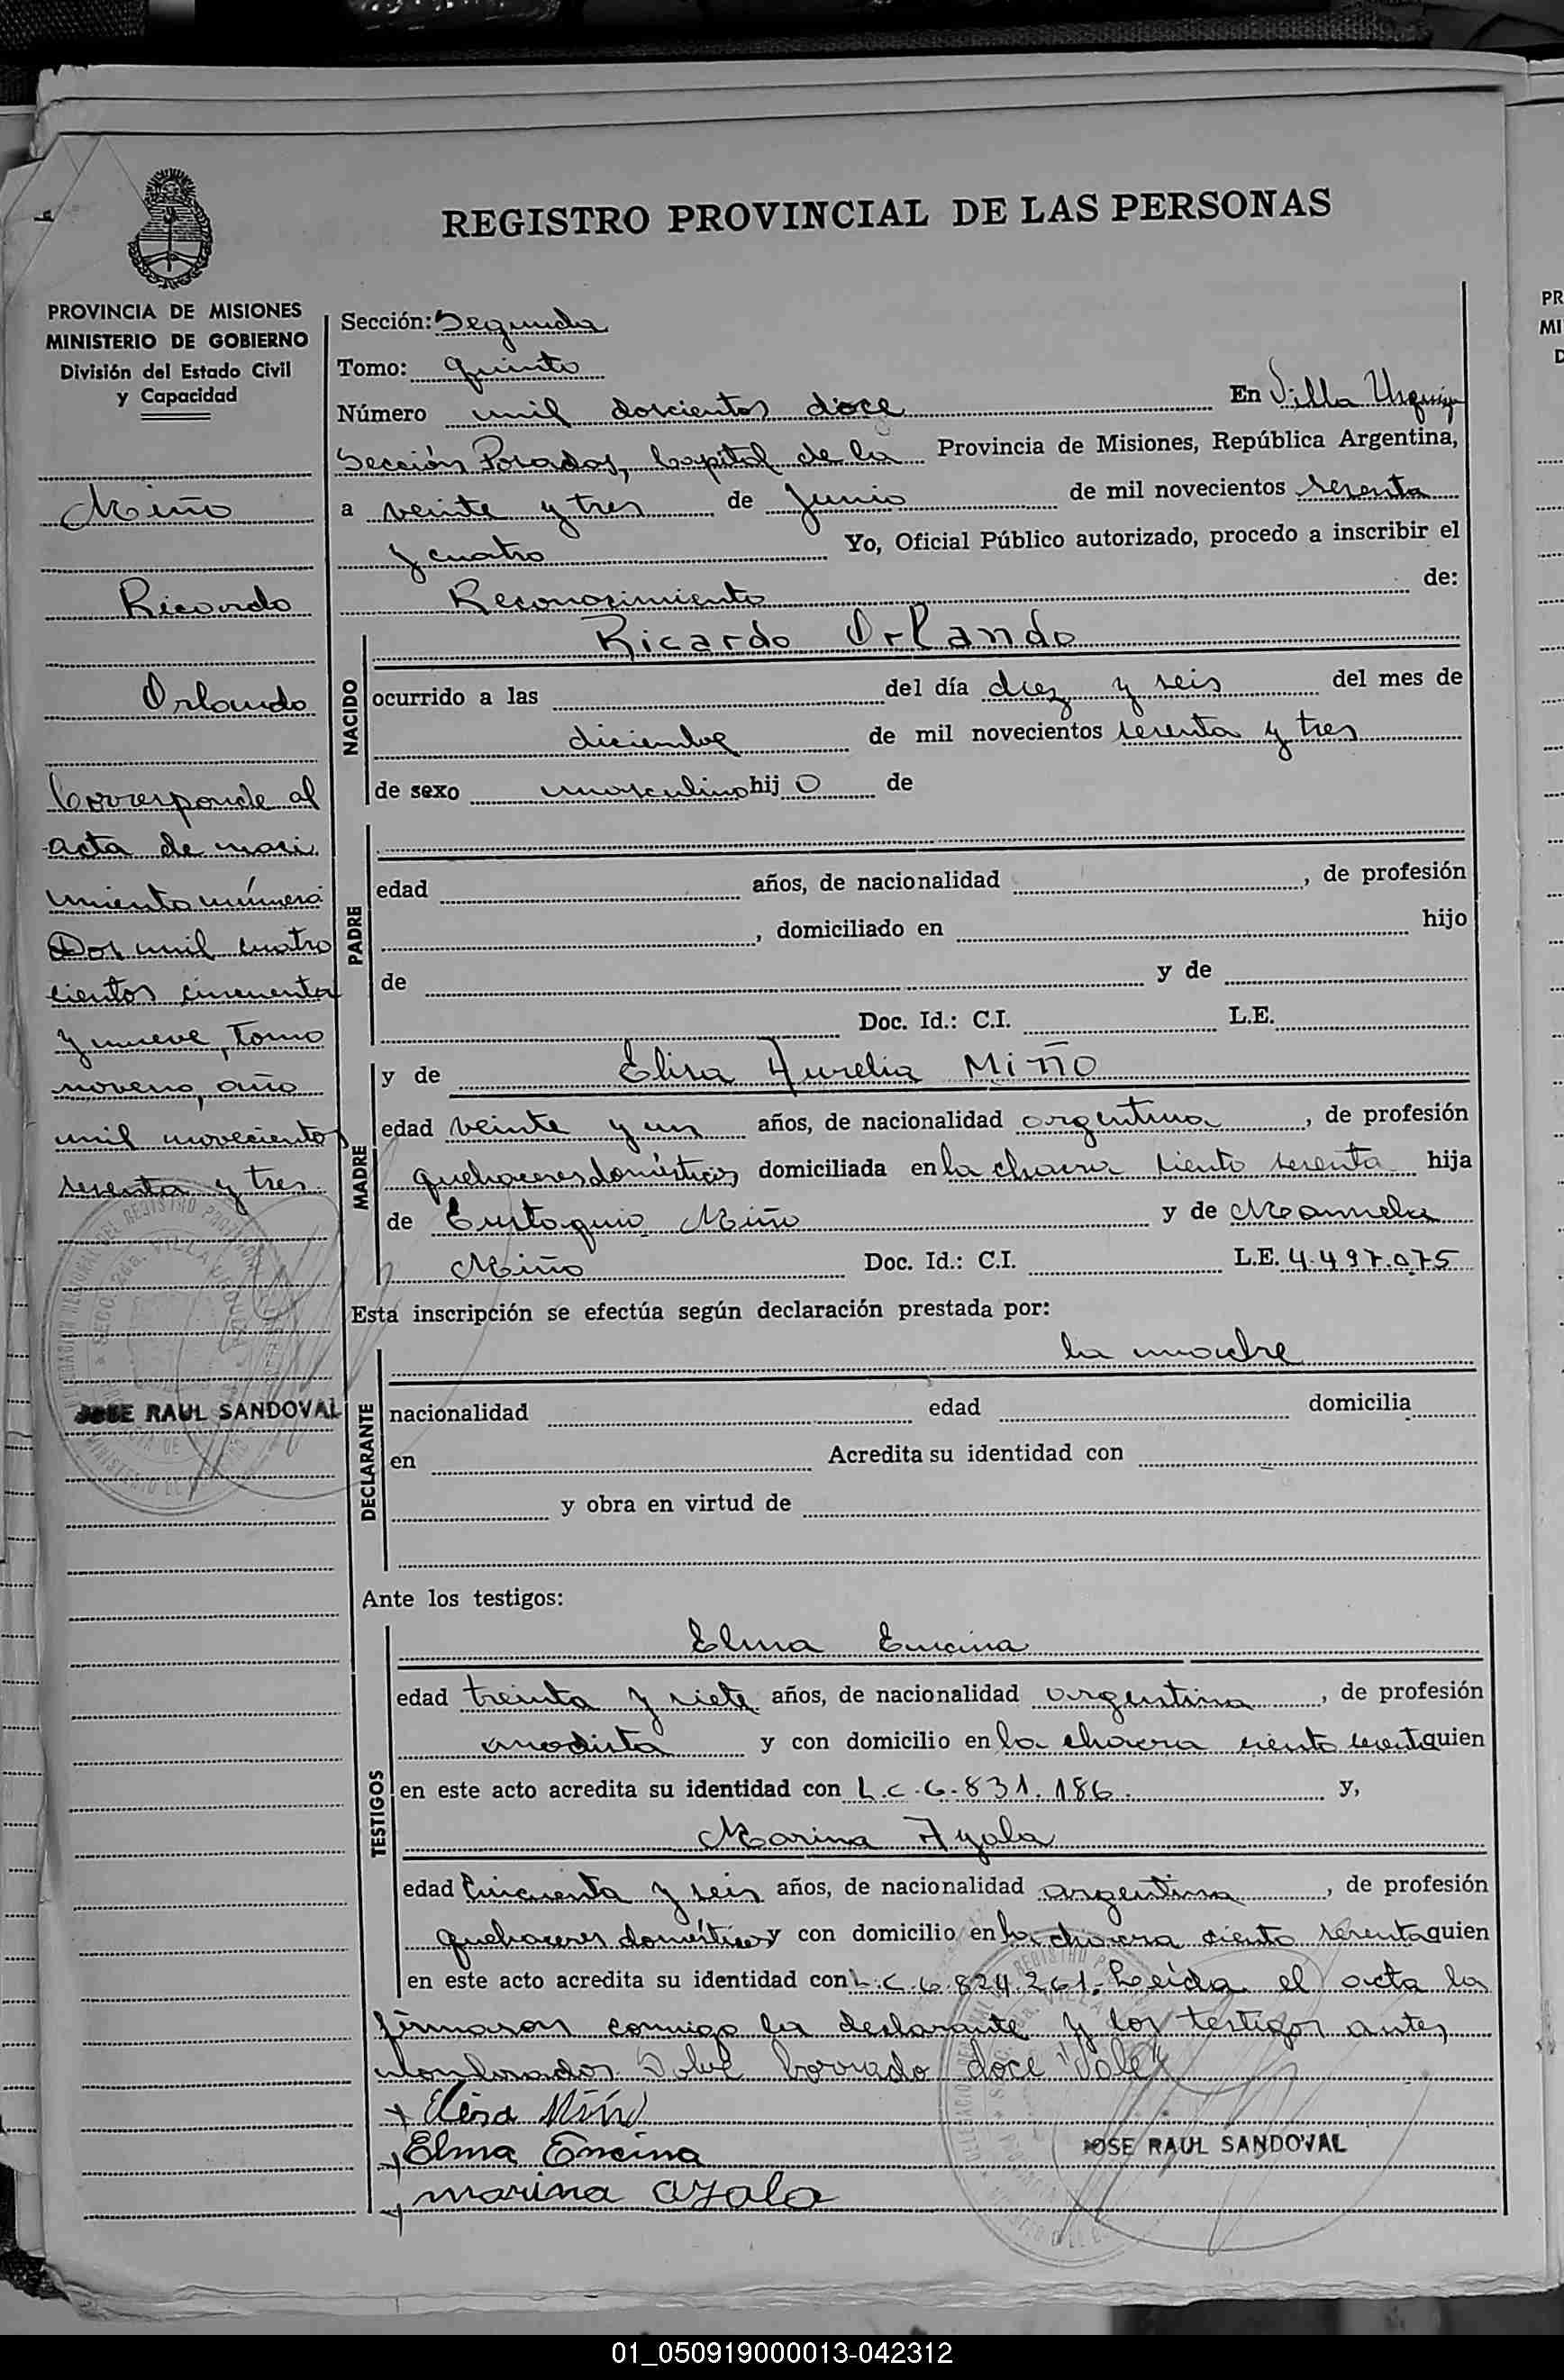 REGISTRO PROVINCIAL DE LAS PERSONAS
PROVINCIA DE MISIONES
MINISTERIO DE GOBIERNO
División del Estado Civil
y Capacidad
Miño
Ricardo
Orlando
Corresponde al
acta de naci
miento número
Dos mil cuatro
cientos cincuenta
y nueve, Tomo
noveno, año
mil novecientos
sesenta y tres
JOSE RAUL SANDOVAL
Sección: Segunda
Tomo: Quinto
Número mil doscientos doce En Villa Urquiza
Sección Posadas, Capital de la Provincia de Misiones, República Argentina,
a veinte y tres de Junio de mil novecientos sesenta
y cuatro Yo, Oficial Público autorizado, procedo a inscribir el
Reconocimiento de:
NACIDO
Ricardo Orlando
ocurrido a las del día diez y seis del mes de
diciembre de mil novecientos sesenta y tres
de sexo masculino hij o de
PADRE
edad años, de nacionalidad , de profesión
, domiciliado en hijo
de y de
Doc. Id.: C.I. L.E.
MADRE
y de Elisa Aurelia Miño
edad veinte y un años, de nacionalidad argentina , de profesión
quehaceres domésticos domiciliada en la chacra ciento sesenta hija
de Eustaquio Miño y de Manuela
Miño Doc. Id.: C.I. L.E. 4.497.075
Esta inscripción se efectúa según declaración prestada por:
DECLARANTE
la madre
nacionalidad edad domicilia
en Acredita su identidad con
y obra en virtud de
Ante los testigos:
TESTIGOS
Elma Encina
edad treinta y siete años, de nacionalidad argentina , de profesión
modista y con domicilio en la chacra ciento quien
en este acto acredita su identidad con L.C. 6.831.186. y,
Marina Ayala
edad Cincuenta y seis años, de nacionalidad argentina , de profesión
quehaceres domésticos y con domicilio en la chacra ciento sesenta quien
en este acto acredita su identidad con L.C. 6.824.261. Leída el acta la
firmaron conmigo la declarante y los testigos antes
nombrados. Sobre borrado doce "Vale"
Elisa Miño
Elma Encina
marina ayala
JOSE RAUL SANDOVAL
01_050919000013-042312